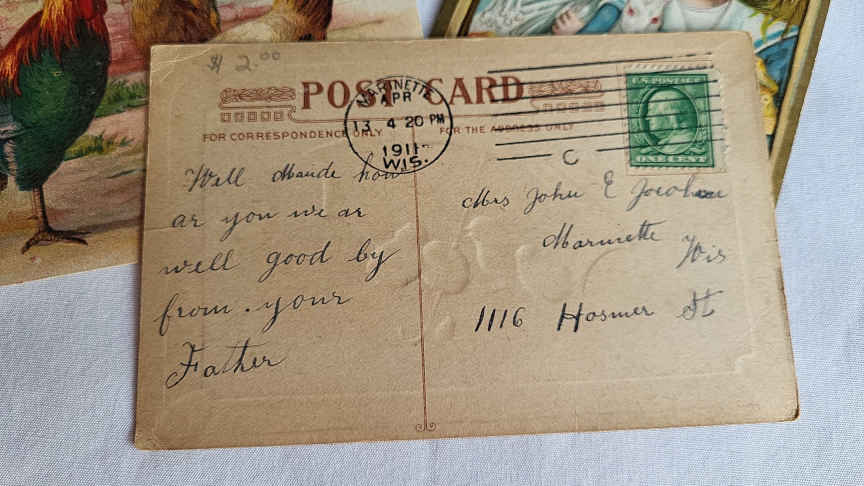 $ 2.00
POST CARD
MARINETTE
APR
13 4 20 PM
1911
WIS.
U.S. POSTAGE
ONE CENT
FOR CORRESPONDENCE ONLY
FOR THE ADDRESS ONLY
C
Well Maude how
ar you we ar
well good by
from . your
Father
Mrs John E
Marinette Wis
1116 Hosmer St